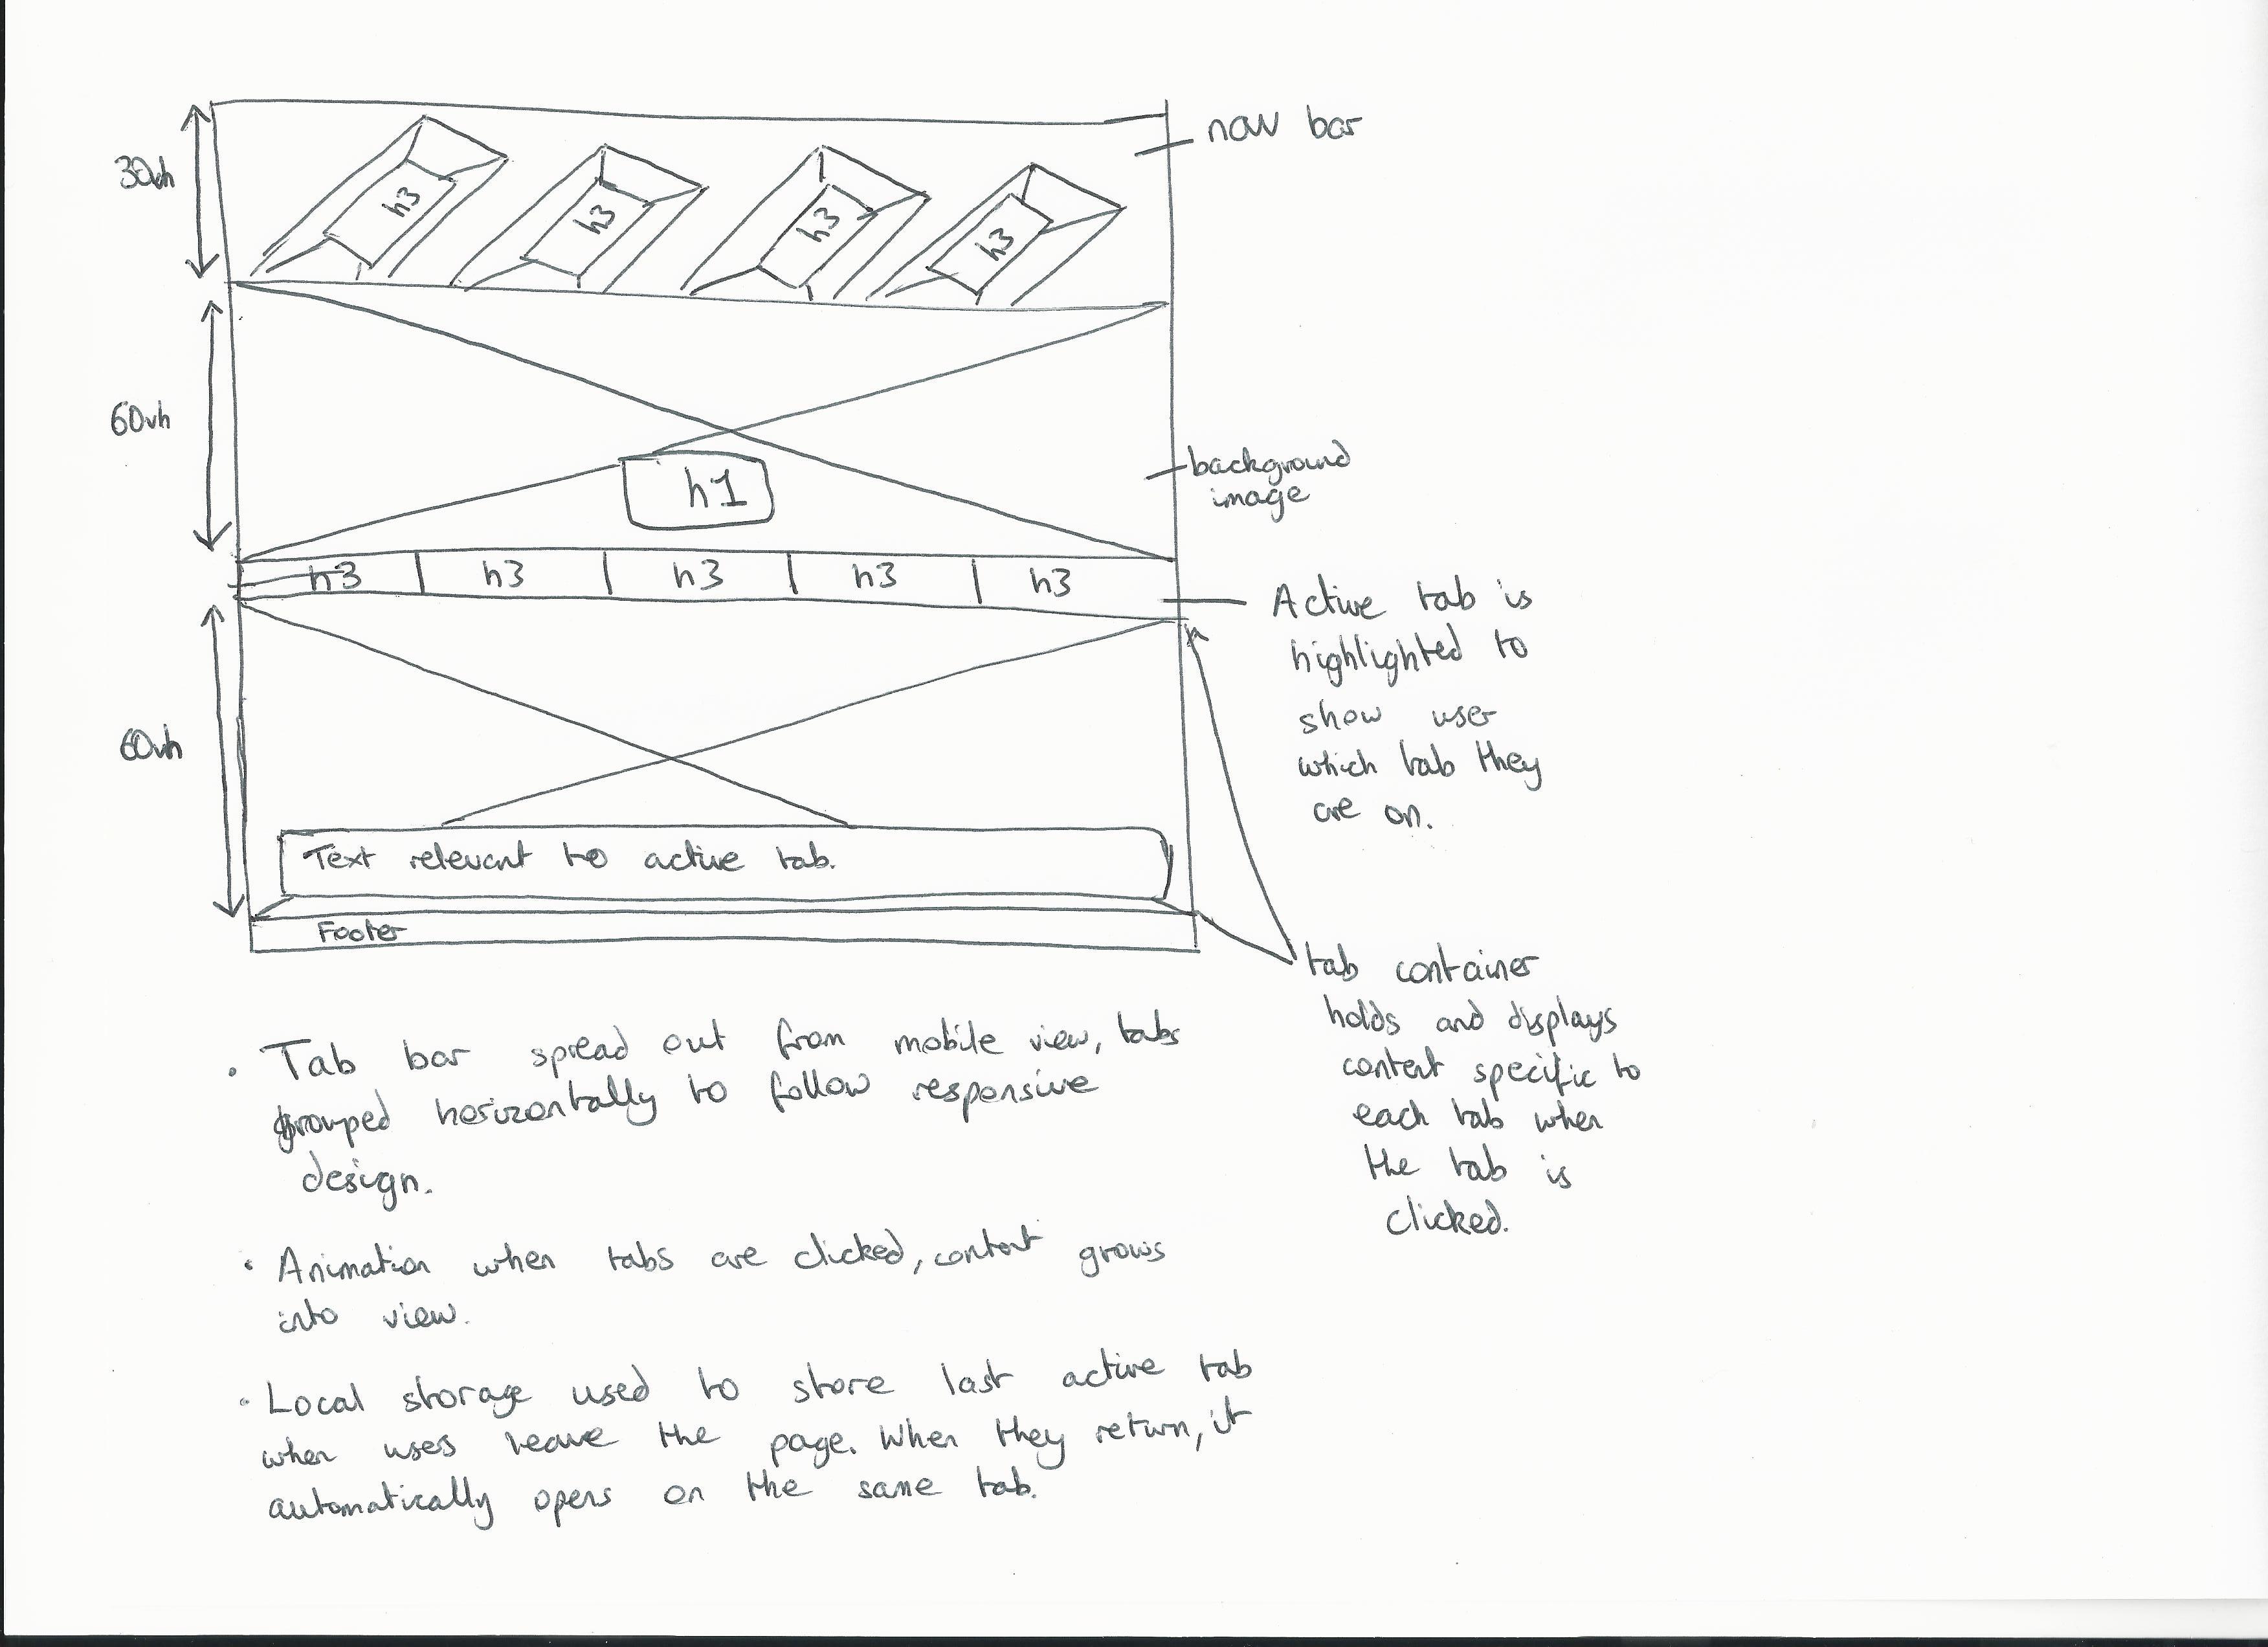 nav bar
30vh
h3
h3
h3
h3
60vh
background
image
h1
h3
h3
h3
h3
h3
Active tab is
highlighted to
show user
which tab they
are on.
60vh
Text relevant to active tab.
Footer
tab container
holds and displays
content specific to
each tab when
the tab is
clicked.
• Tab bar spread out from mobile view, tabs
grouped horizontally to follow responsive
design.
• Animation when tabs are clicked, content grows
into view.
• Local storage used to store last active tab
when uses leave the page. When they return, it
automatically opens on the same tab.